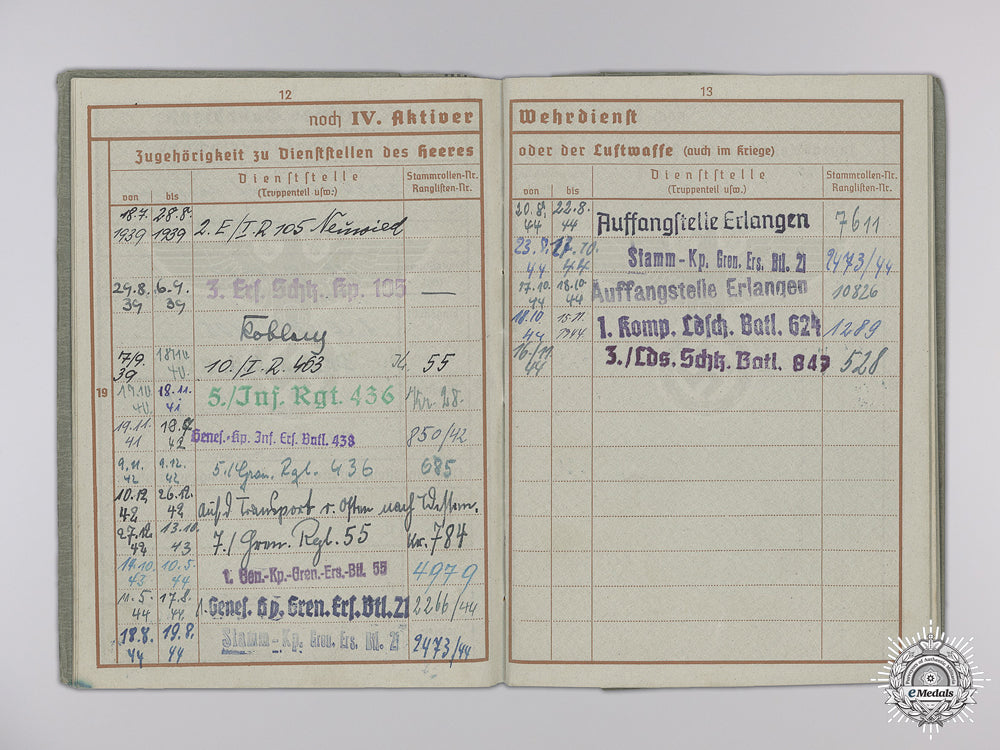 12
noch IV. Aktiver
Zugehörigkeit zu Dienststellen des Heeres
von bis Dienststelle (Truppenteil usw.) Stammrollen-Nr. Ranglisten-Nr.
18.7. 1939 28.8. 1939 2. E/I.R 105 Neuwied
29.8. 39 6.9. 39 3. Ers. Schtz. Kp. 105 —
Koblenz
7/9. 39 18.10. 40. 10./I.R. 463 55
19
19.10. 40. 18.11. 41 5./Inf. Rgt. 436 Nr. 28.
19.11. 41 42 Genes.-Kp. Inf. Ers. Batl. 438 850/42
9.11. 42 9.12. 42 5./Gren. Rgt. 436 685
10.12. 42 26.12. 42 auf d Transport v. Osten nach Westen.
27.12. 42 13.10. 43 7./Gren. Rgt. 55 Nr. 784
14.10. 43 10.5. 44 1. Gen.-Kp.-Gren.-Ers.-Btl. 55 4979
11.5. 44 17.8. 44 1. Genes. Kp. Gren. Ers. Btl. 21 2266/44
18.8. 44 19.8. 44 Stamm-Kp. Gren. Ers. Btl. 21 2473/44
13
Wehrdienst
oder der Luftwaffe (auch im Kriege)
von bis Dienststelle (Truppenteil usw.) Stammrollen-Nr. Ranglisten-Nr.
20.8. 44 22.8. 44 Auffangstelle Erlangen 7611
23.8. 44 17.10. 44 Stamm-Kp. Gren. Ers. Btl. 21 2473/44
17.10. 44 18.10. 44 Auffangstelle Erlangen 10826
18.10. 44 15.11. 1944 1. Komp. Ldsch. Batl. 624 1289
16/11. 44 3./Lds. Schtz. Batl. 847 528
eMedals